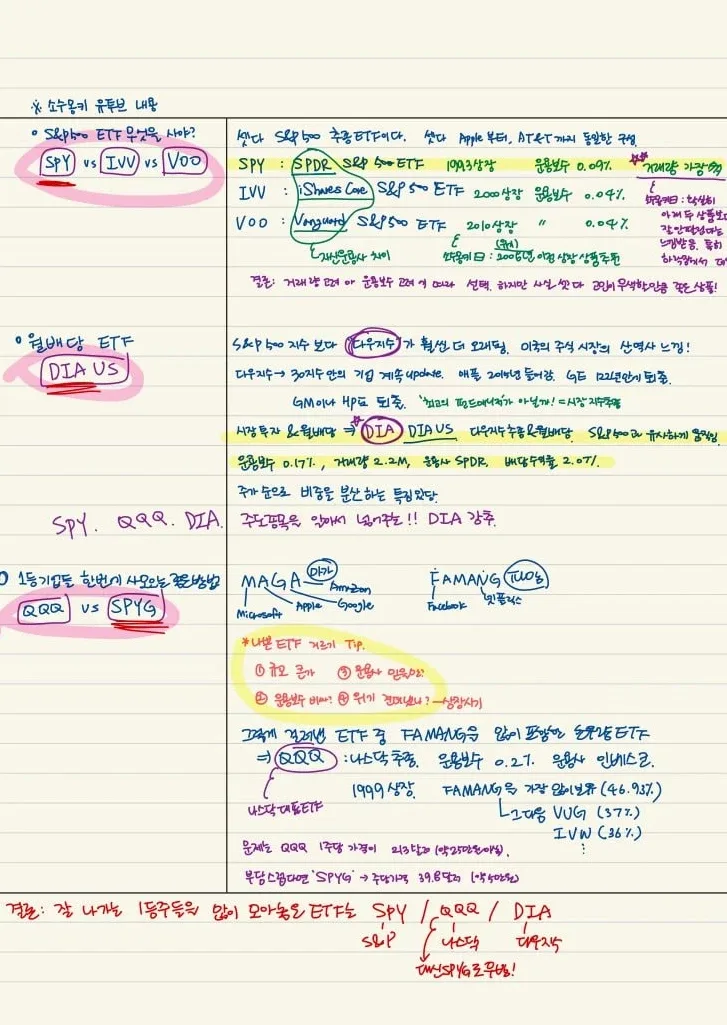 ※ 소수몽키 유투브 내용
◦ S&P500 ETF 무엇을 사야?
SPY vs IVV vs VOO
셋다 S&P 500 추종 ETF이다. 셋다 Apple부터, AT&T까지 동일한 구성
SPY : SPDR S&P 500 ETF 1993상장 운용보수 0.09% 거래량 가장
IVV : iShares Core S&P 500 ETF 2000상장 운용보수 0.04%
VOO : Vanguard S&P 500 ETF 2010상장 〃 0.04%
자산운용사 차이
소수몽키曰 : 2008년 이전 상장 상품 추천
소수몽키曰 : 확실히
아래 두 상품보
느낌받음. 특히
하락장에서
결론 : 거래량 고려 or 운용보수 고려에 따라 선택. 하지만 사실 셋 다 좋은 상품!
◦ 월배당 ETF
DIA US
S&P 500 지수 보다 다우지수가 훨씬 더 오래됨. 미국의 주식 시장의 산역사 느낌!
다우지수 → 30지수 안의 기업 계속 update. 애플 2015년 들어감. GE 퇴출.
GM이나 HP도 퇴출. '최고의 펀드매니저가 아닐까! = 시장지수추종
시장 투자 & 월배당 ⇒ DIA DIA US 다우지수추종 & 월배당. S&P500과 유사하게 움직임.
운용보수 0.17%, 거래량 2.2M, 운용사 SPDR. 배당수익률 2.07%.
주가 순으로 비중을 분산하는 특징있당.
SPY. QQQ. DIA.
주도종목을 알아서 넣어주는!! DIA 강추.
◦ 1등기업들 한번에 사모으는 좋은방법
QQQ vs SPYG
MAGA 마가
Microsoft Apple Google Amazon
FAMANG
Facebook 넷플릭스
*나쁜 ETF 거르기 Tip.
① 규모 큰가 ③ 운용사 믿을만?
② 운용보수 비싸? ④ 위기 견뎌냈나? → 상장시기
그렇게 걸러낸 ETF 중 FAMANG을 많이 포함한 ETF
⇒ QQQ : 나스닥 추종. 운용보수 0.2%. 운용사 인베스코.
나스닥 대표ETF
1999상장. FAMANG을 가장 많이보유 (46.93%)
그다음 VUG (37%)
IVW (36%)
⋮
문제는 QQQ 1주당 가격이 213달러 (약 25만원이상).
부담스럽다면 'SPYG' → 주당가격 39.8달러 (약 5만원)
결론 : 잘 나가는 1등주들을 많이 모아놓은 ETF는 SPY / QQQ / DIA
S&P 나스닥 다우지수
대신 SPYG로 무방!